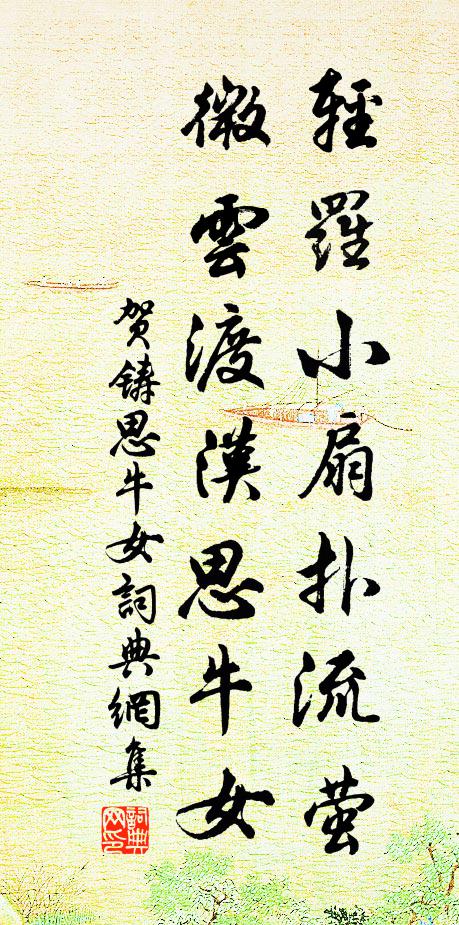 輕羅小扇扑流萤
微雲渡漢思牛女
贺鑄思牛女詞典網集
詞典网印